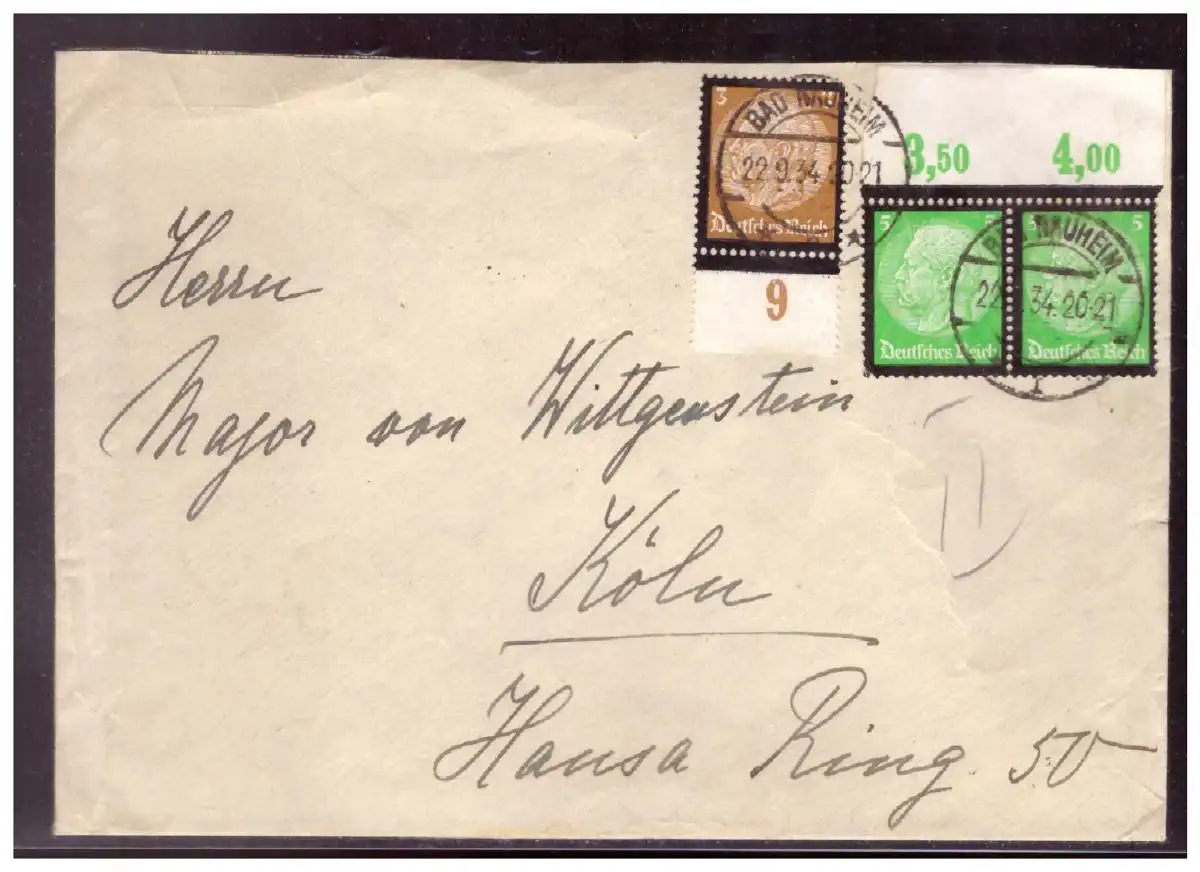 3
BAD NAUHEIM
22.9.34.20-21
Deutsches Reich
9
3,50 4,00
5 5 5 5
BAD NAUHEIM
22. .34.20-21
Deutsches Reich Deutsches Reich
Herrn
Major von Wittgenstein
Köln
Hansa Ring 50